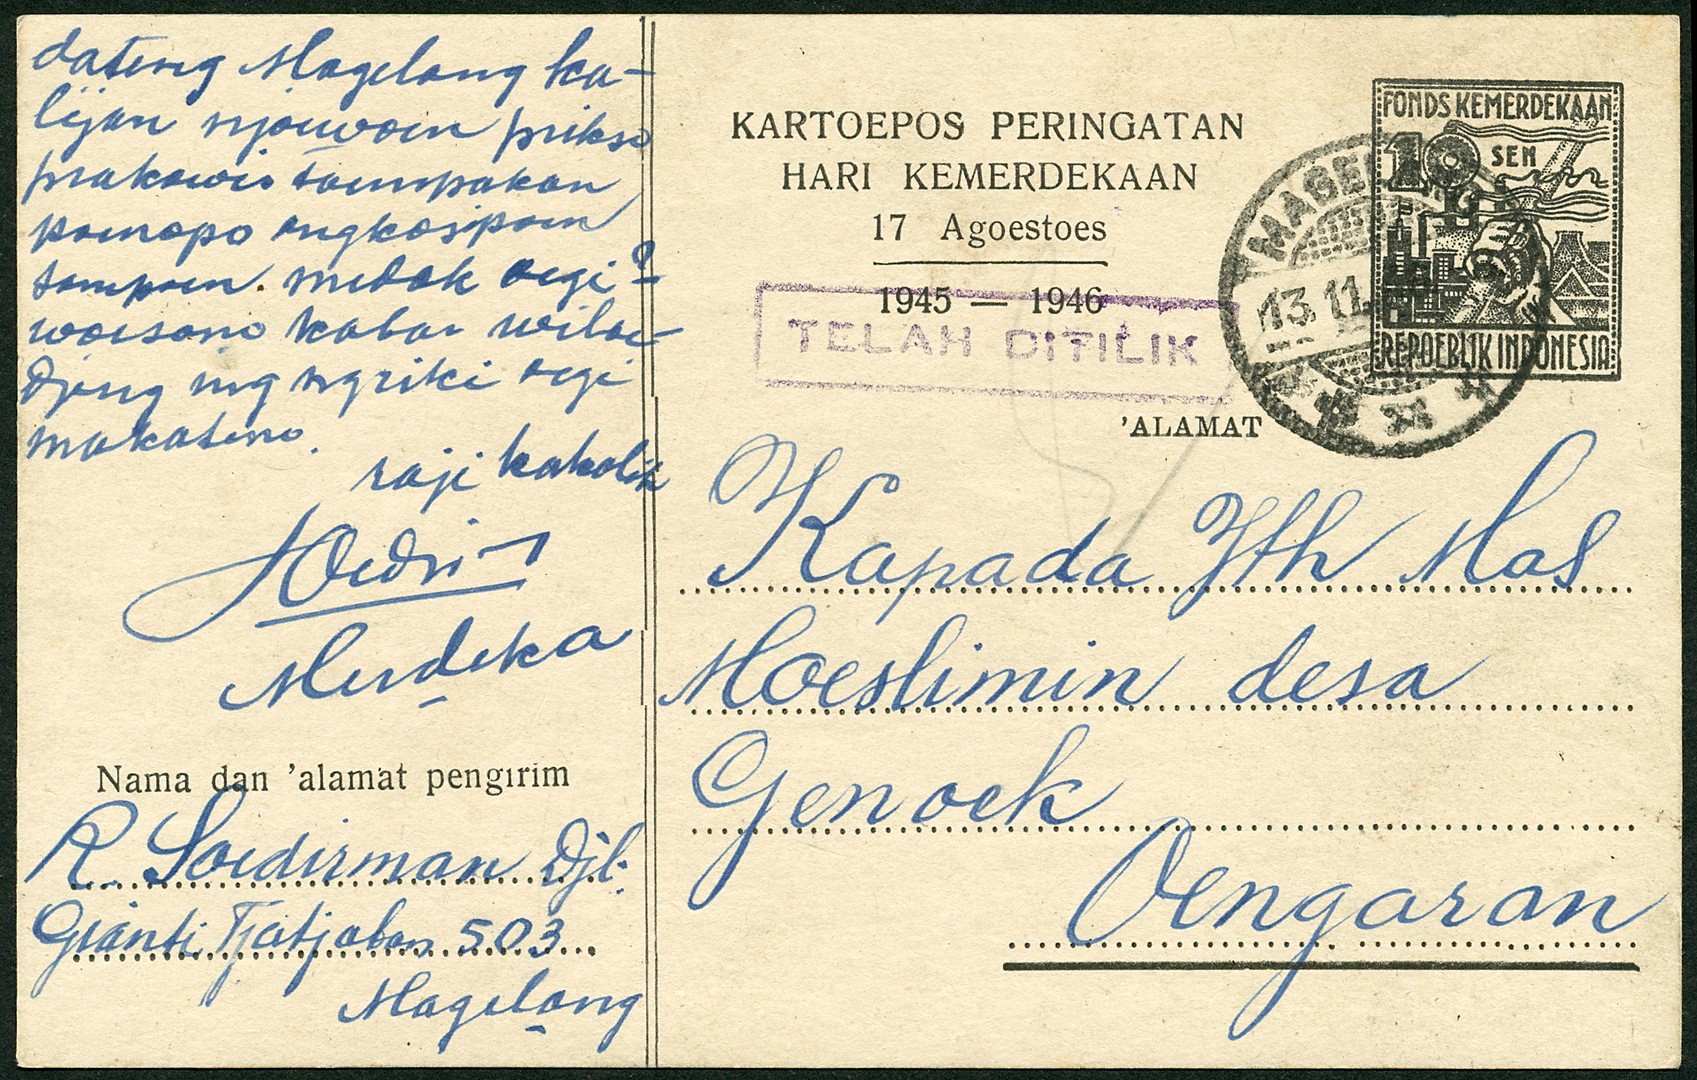 dateng Magelang ka-
lijan njoewoen prikso
prakawis toempakan
poenopo ongkosipoen
sampoen medak oegi?
woesono kabar wiloe-
djeng ing ngriki oegi
makaten.
raji
Merdeka
Nama dan 'alamat pengirim
R. Soedirman Djl.
Gianti Tjatjaban 503
Magelang
KARTOEPOS PERINGATAN
HARI KEMERDEKAAN
17 Agoestoes
1945 — 1946
TELAH DITILIK
FONDS KEMERDEKAAN
10 SEN
REPOEBLIK INDONESIA
MAGELANG
13.11.
'ALAMAT
Kapada Jth Mas
Moeslimin desa
Genoek
Oengaran